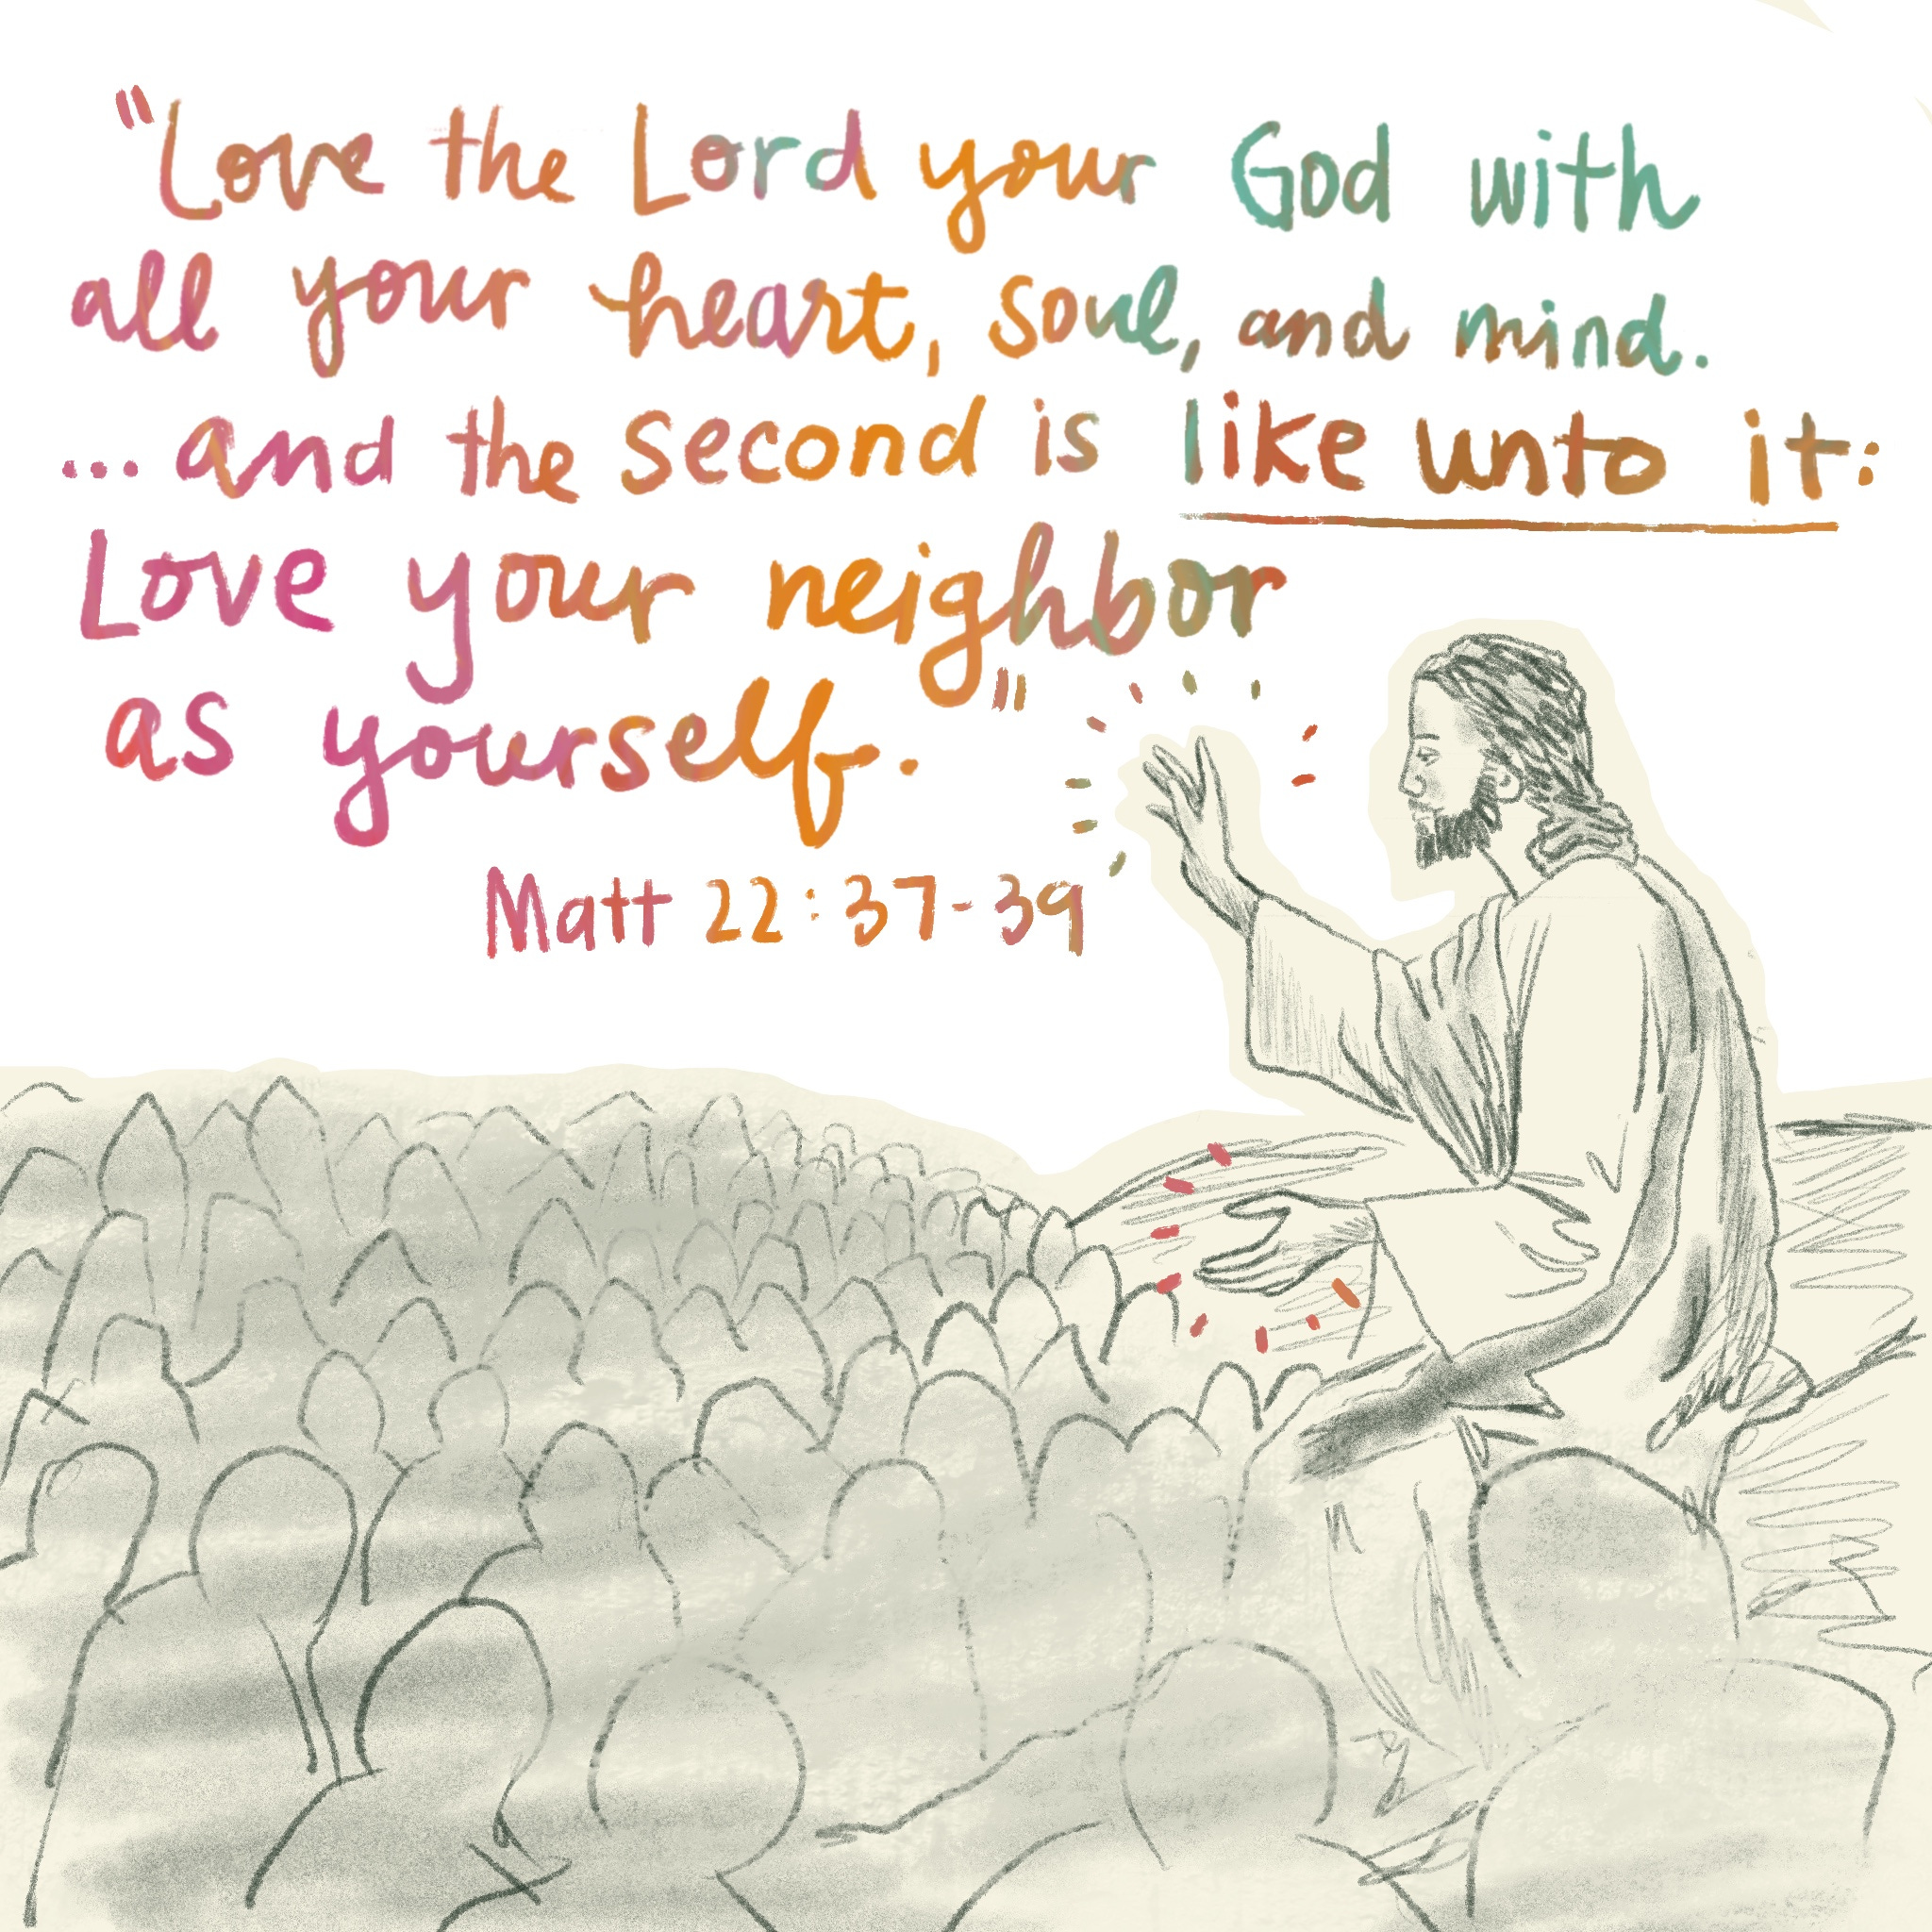 "Love the Lord your God with
all your heart, soul, and mind.
... and the second is like unto it:
Love your neighbor
as yourself."
Matt 22:37-39